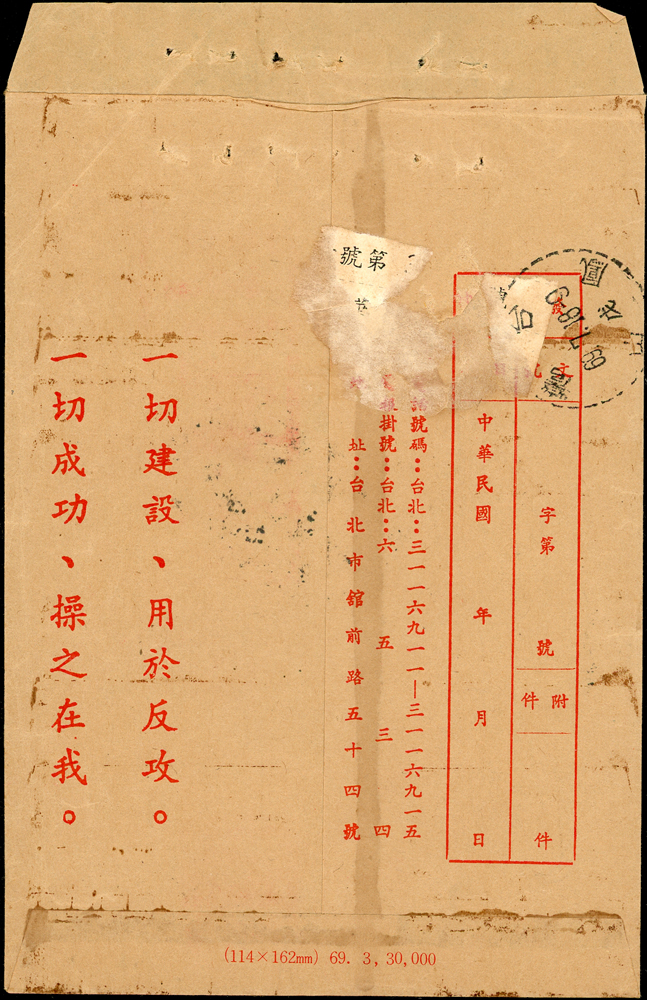 第
號
發
文
字第 號
附件 件
中華民國 年 月 日
話號碼：台北：三一一六九一一—三一一六九一五
掛號：台北：六五三四
址：台北市舘前路五十四號
一切建設、用於反攻。
一切成功、操之在我。
(114×162mm) 69. 3, 30,000